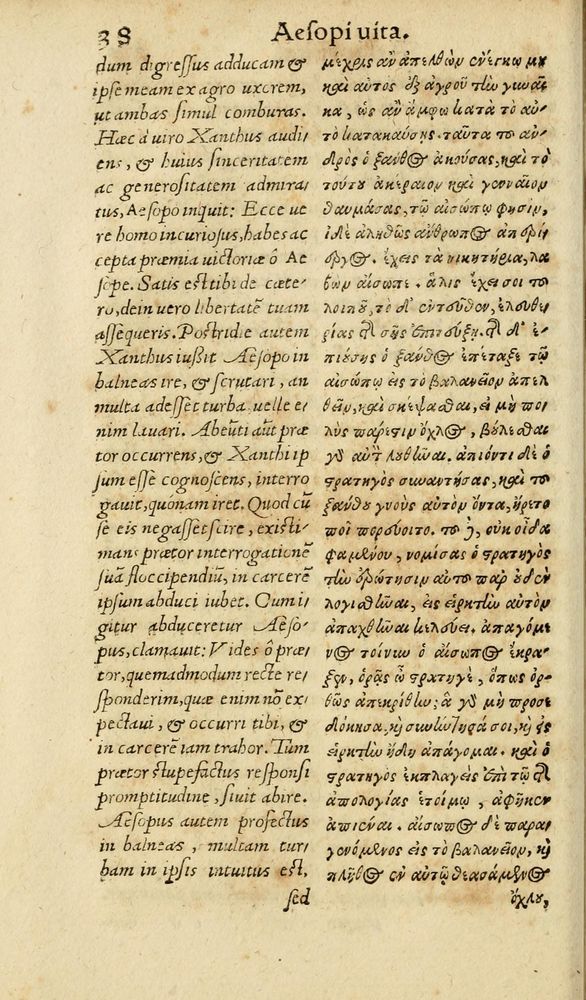 38 Aesopi uita.
dum digressus adducam &
ipse meam ex agro uxorem,
ut ambas simul comburas.
Hæc à uiro Xanthus audi-
ens, & huius sinceritatem
ac generositatem admira-
tus, Aesopo inquit: Ecce ue
re homo incuriosus, habes ac
cepta præmia uictoriæ ô Ae
sope. Satis est tibi de cæte-
ro, dein uero libertatē tuam
assequeris. Postridie autem
Xanthus iußit Aesopo in
balneas ire, & scrutari, an
multa adesset turba, uelle e-
nim lauari. Abeūti aūt præ
tor occurrens, & Xanthi ip
sum esse cognoscens, interro
gauit, quonam iret. Quod cū
se eis negasset scire, existi-
mans prætor interrogationē
suā floccipendiū, in carcerē
ipsum abduci iubet. Cum i-
gitur abduceretur Aeso-
pus, clamauit: Vides ô præ-
tor, quemadmodum recte re-
sponderim, quæ enim nō ex-
pectaui, & occurri tibi, &
in carcerē iam trahor. Tum
prætor stupefactus responsi
promptitudine, siuit abire.
Aesopus autem profectus
in balneas, multam tur-
bam in ipsis intuitus est,
sed
μέχρις ἂν ἀπελθὼν ἐνέγκω μὴ
καὶ αὐτὸς ἐξ ἀγροῦ τὴν γυναῖ-
κα, ὡς ἂν ἄμφω κατὰ τὸ αὐ-
τὸ κατακαύσῃς. ταῦτα το ἀν-
δρὸς ὁ ξάνθος ἀκούσας, καὶ τὸ
τούτου ἀκέραιον καὶ γενναῖον
θαυμάσας, τῷ αἰσώπῳ φησὶν,
ἰδὲ ἀληθῶς ἄνθρωπος ἀπερί-
εργος. ἔχεις τὰ νικητήρια, λα
βὼν αἴσωπε. ἅλις ἔχει σοι το
λοιπὸν, τὸ δ' ἐντεῦθεν, ἐλευθε-
ρίας τῆς σῆς ἐπιτεύξῃ. τῇ δ' ἐ-
πιούσῃ ὁ ξάνθος ἐπέταξε τῷ
αἰσώπῳ εἰς τὸ βαλανεῖον ἀπελ
θεῖν, καὶ σκέψασθαι, εἰ μὴ πο-
λὺς πάρεστιν ὄχλος, βούλεσθαι
γὰρ αὐτ λουθῆναι. ἀπιόντι δὲ ὁ
στρατηγὸς συναντήσας, καὶ τοῦ
ξάνθου γνοὺς αὐτὸν ὄντα, ἤρετο
ποῖ πορεύοιτο. το δὲ, οὐκ οἶδα
φαμένου, νομίσας ὁ στρατηγὸς
τὴν ἐρώτησιν αὐτο παρ οὐδὲν
λογισθῆναι, εἰς εἱρκτὴν αὐτὸν
ἀπαχθῆναι κελεύει. ἀπαγόμε
νος τοίνυν ὁ αἴσωπος ἔκρα-
ξεν, ὁρᾷς ὦ στρατηγὲ, ὅπως ὀρ-
θῶς ἀπεκρίθην; ἃ γὰρ μὴ προσε
δόκησα, καὶ συνήντησά σοι, καὶ εἰς
εἱρκτὴν ἤδη ἀπάγομαι. καὶ ὁ
στρατηγὸς ἐκπλαγεὶς ἐπὶ τῷ τῆς
ἀπολογίας ἑτοίμῳ, ἀφῆκεν
ἀπιέναι. αἴσωπος δὲ παρα-
γενόμενος εἰς τὸ βαλανεῖον, καὶ
πλῆθος ἐν αὐτῷ θεασάμενος
ὄχλου,